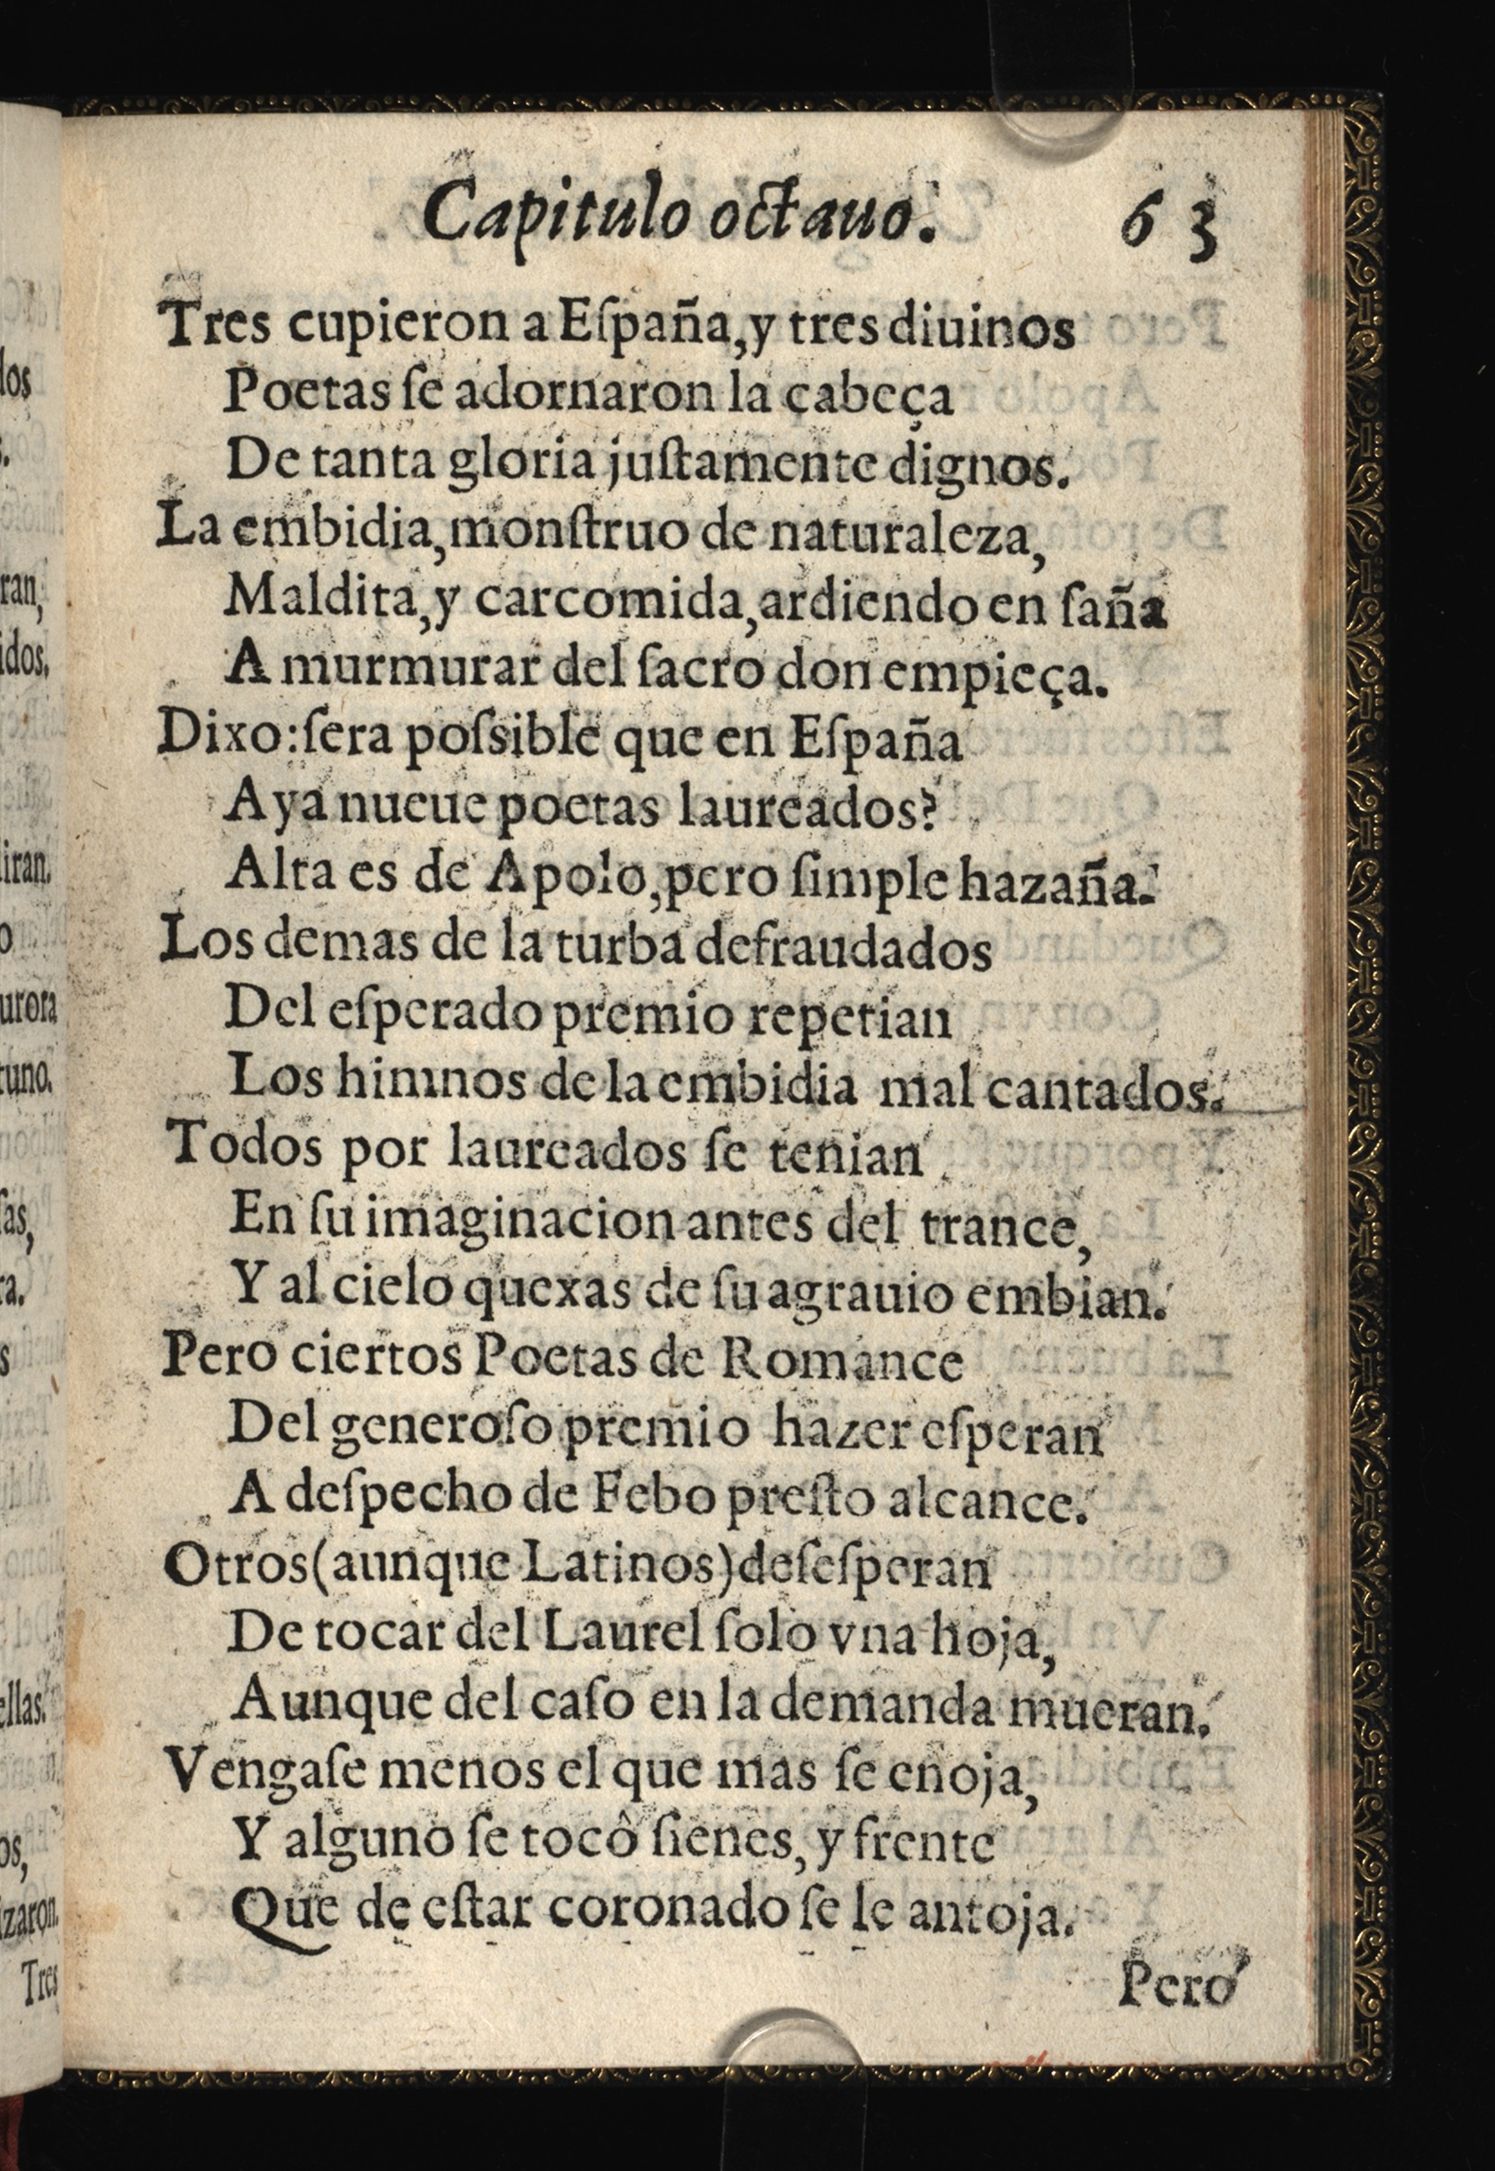 Capitulo octauo. 63
Tres cupieron a Eſpaña, y tres diuinos
Poetas ſe adornaron la cabeça
De tanta gloria juſtamente dignos.
La embidia, monſtruo de naturaleza,
Maldita, y carcomida, ardiendo en ſaña
A murmurar del ſacro don empieça.
Dixo: ſera poſsible que en Eſpaña
Aya nueue poetas laureados?
Alta es de Apolo, pero ſimple hazaña.
Los demas de la turba defraudados
Del eſperado premio repetian
Los himnos de la embidia mal cantados.
Todos por laureados ſe tenian
En ſu imaginacion antes del trance,
Y al cielo quexas de ſu agrauio embian.
Pero ciertos Poetas de Romance
Del generoſo premio hazer eſperan
A deſpecho de Febo preſto alcance.
Otros (aunque Latinos) deſeſperan
De tocar del Laurel ſolo vna hoja,
Aunque del caſo en la demanda mueran.
Vengaſe menos el que mas ſe enoja,
Y alguno ſe tocô ſienes, y frente
Que de eſtar coronado ſe le antoja.
Pero